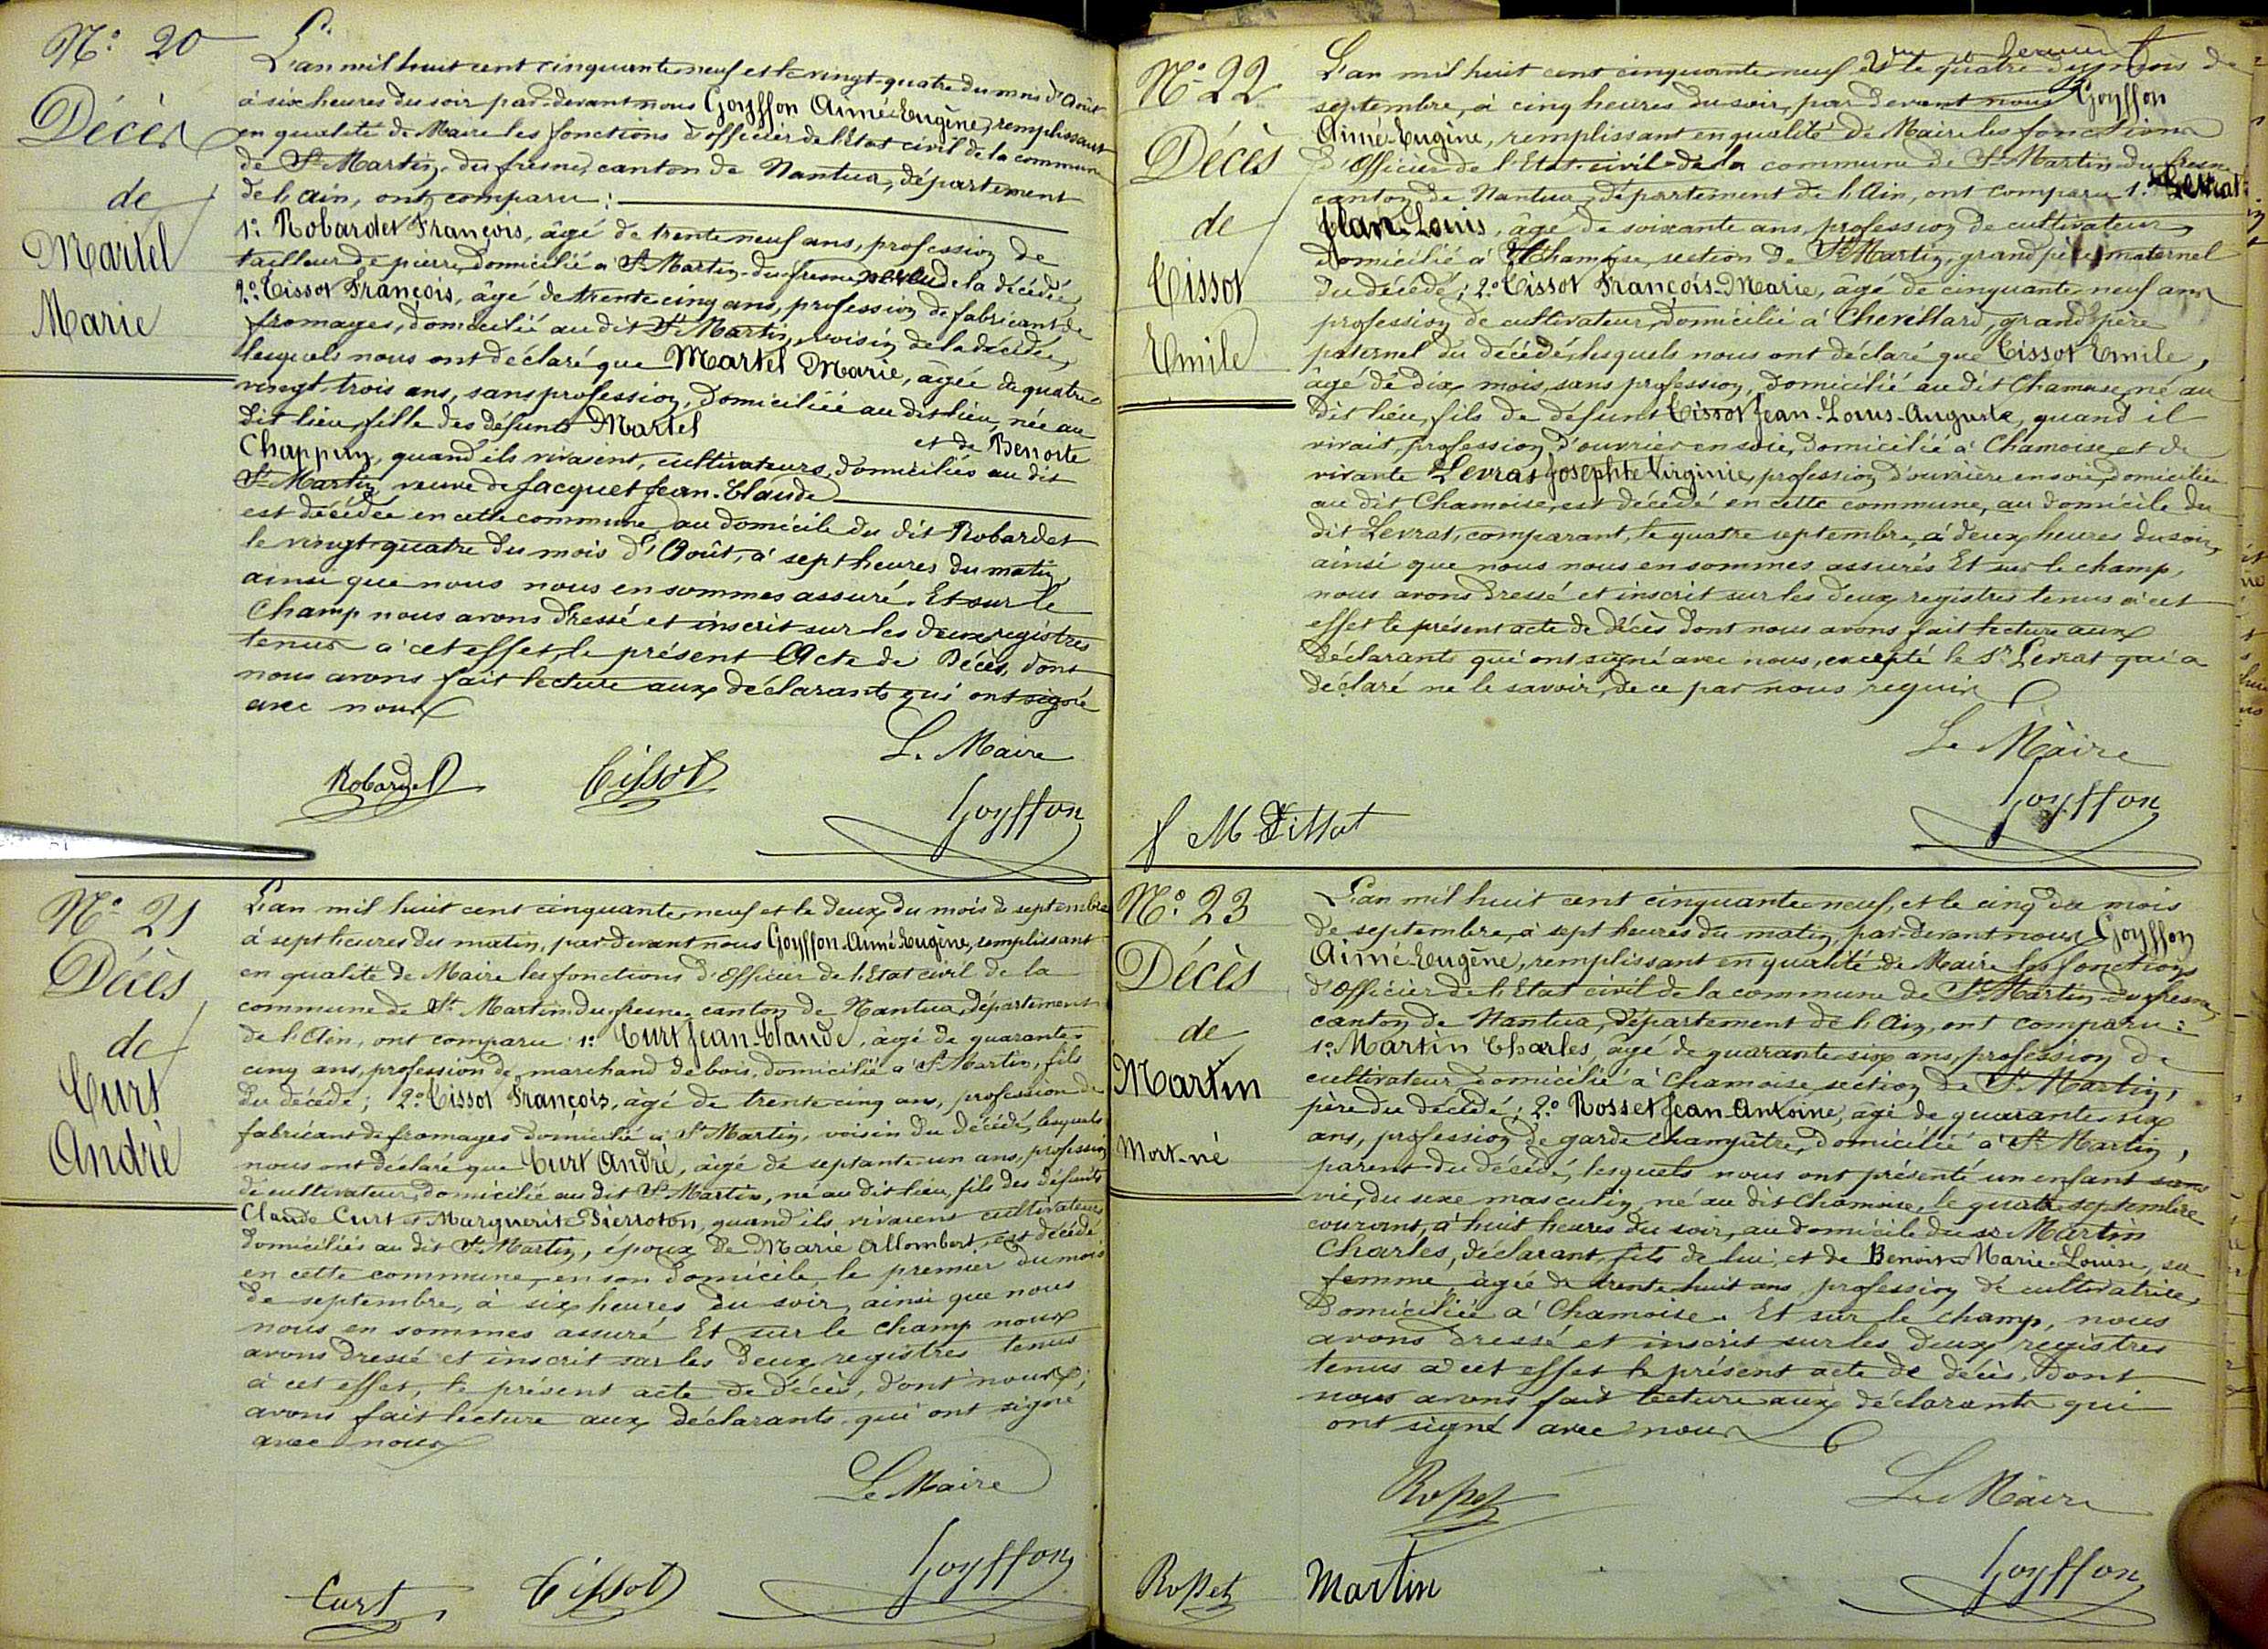 N° 20
Décès
de
Martel
Marie
L'an mil huit cent cinquante neuf et le vingt-quatre du mois d'Août
à six heures du soir par-devant nous Goyffon Aimé-Eugène, remplissant
en qualité de Maire les fonctions d'officier de l'Etat civil de la commune
de St Martin-du-fresne, canton de Nantua, département
de l'ain, ont comparu :
1° Robardet François, âgé de trente neuf ans, profession de
tailleur de pierre, domicilié à St Martin-du-fresne, neveu de la décédée
2° Tissot François, âgé de trente cinq ans, profession de fabricant de
fromages, domicilié au dit St Martin, voisin de la décédée,
lesquels nous ont déclaré que Martel Marie, âgée de quatre
vingt-trois ans, sans profession, domiciliée au dit lieu, née au
dit lieu, fille des défunts Martel et de Benoite
Chappuy, quand ils vivaient, cultivateurs, domiciliés au dit
St Martin, veuve de Jacquet Jean-Claude
est décédée en cette commune, au domicile du dit Robardet
le vingt-quatre du mois d'Août, à sept heures du matin,
ainsi que nous nous en sommes assuré. Et sur le
Champ nous avons dressé et inscrit sur les deux registres
tenus à cet effet, le présent Acte de Décès, dont
nous avons fait lecture aux déclarants qui ont signé
avec nous
Le Maire
Robardet Tissot Goyffon
N° 21
Décès
de
Curt
André
L'an mil huit cent cinquante neuf et le deux du mois de septembre
à sept heures du matin, par-devant nous Goyffon-Aimé-Eugène, remplissant
en qualité de Maire les fonctions d'Officier de l'Etat civil de la
commune de St Martin-du-fresne, canton de Nantua, département
de l'Ain, ont comparu : 1° Curt Jean-Claude, âgé de quarante-
cinq ans, profession de marchand de bois, domicilié à St Martin, fils
du décédé; 2° Tissot François, âgé de trente cinq ans, profession de
fabricant de fromages domicilié à St Martin, voisin du décédé, lesquels
nous ont déclaré que Curt André, âgé de septante-un ans, profession
de cultivateur, domicilié au dit St Martin, né au dit lieu, fils des défunts
Claude Curt et Marguerite Pierroton, quand ils vivaient cultivateurs
domiciliés au dit St Martin, époux de Marie Allombert, est décédé
en cette commune, en son domicile, le premier du mois
de septembre, à six heures du soir, ainsi que nous
nous en sommes assuré Et sur le champ nous
avons dressé et inscrit sur les deux registres tenus
à cet effet, le présent acte de décès, dont nous
avons fait lecture aux déclarants qui ont signé
avec nous
Le Maire
Curt Tissot Goyffon
N° 22
Décès
de
Tissot
Emile
L'an mil huit cent cinquante neuf et le quatre du mois de
septembre, à cinq heures du soir, par devant nous Goyffon
Aimé-Eugène, remplissant en qualité de Maire les fonctions
d'Officier de l'Etat-civil de la commune de St Martin-du-fresne
canton de Nantua, département de l'Ain, ont comparu 1° Levrat
Jean-Louis, âgé de soixante ans, profession de cultivateur,
domicilié à Chamoise, section de St Martin, grand père maternel
du décédé; 2° Tissot François-Marie, âgé de cinquante-neuf ans
profession de cultivateur, domicilié à Chevillard, grand père
paternel du décédé, lesquels nous ont déclaré que Tissot Emile,
âgé de dix mois, sans profession, domicilié au dit Chamoise, né au
dit lieu, fils de défunt Tissot Jean-Louis-Auguste, quand il
vivait, profession d'ouvrier en soie, domicilié à Chamoise, et de
vivante Levrat Josephte Virginie, profession d'ouvrière en soie, domiciliée
au dit Chamoise, est décédé en cette commune, au domicile du
dit Levrat, comparant, le quatre septembre, à deux heures du soir,
ainsi que nous nous en sommes assurés Et sur le champ,
nous avons dressé et inscrit sur les deux registres tenus à cet
effet le présent acte de décès dont nous avons fait lecture aux
déclarants qui ont signé avec nous, excepté le Sr Levrat qui a
déclaré ne le savoir, de ce par nous requis
Le Maire
Goyffon
f M Tissot
N° 23
Décès
de
Martin
Mort-né
L'an mil huit cent cinquante neuf, et le cinq du mois
de septembre, à sept heures du matin, par-devant nous Goyffon
Aimé-Eugène, remplissant en qualité de Maire les fonctions
d'Officier de l'Etat civil de la commune de St Martin-du-fresne,
canton de Nantua, département de l'Ain, ont comparu :
1° Martin Charles, âgé de quarante-six ans, profession de
cultivateur, domicilié à Chamoise, section de St Martin,
père du décédé; 2° Rosset Jean-Antoine, âgé de quarante-six
ans, profession de garde champêtre, domicilié à St Martin,
parent du décédé, lesquels nous ont présenté un enfant sans
vie, du sexe masculin, né au dit Chamoise, le quatre septembre
courant, à huit heures du soir, au domicile du sr Martin
Charles, déclarant, fils de lui et de Benoit Marie-Louise, sa
femme, âgée de trente-huit ans, profession de cultivatrice,
domiciliée à Chamoise. Et sur le champ, nous
avons dressé et inscrit sur les deux registres
tenus à cet effet le présent acte de décès, dont
nous avons fait lecture aux déclarants qui
ont signé avec nous
Rosset Le Maire
Rosset Martin Goyffon